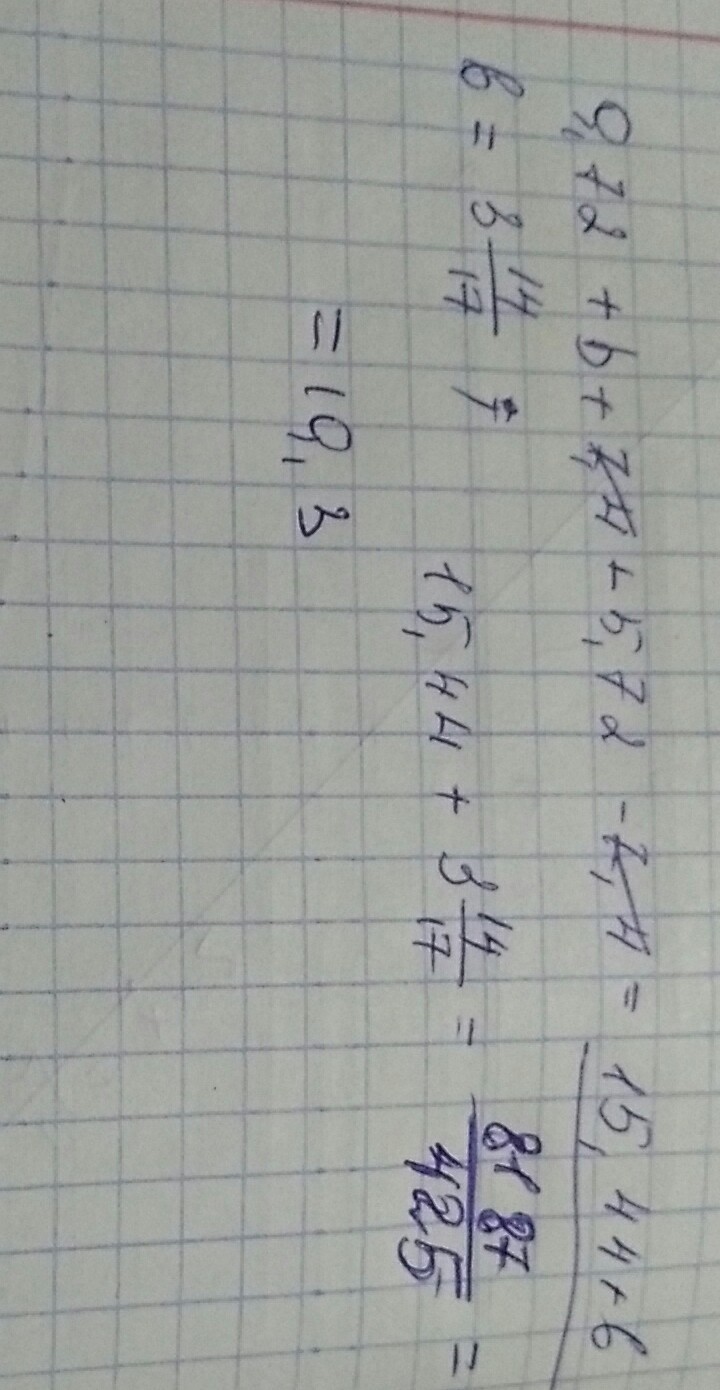 9,72 + b + 7,4 + 5,72 - 7,4 = 15,44 + b
b = 3 14/17 15,44 + 3 14/17 = 8187/425 =
= 19,3